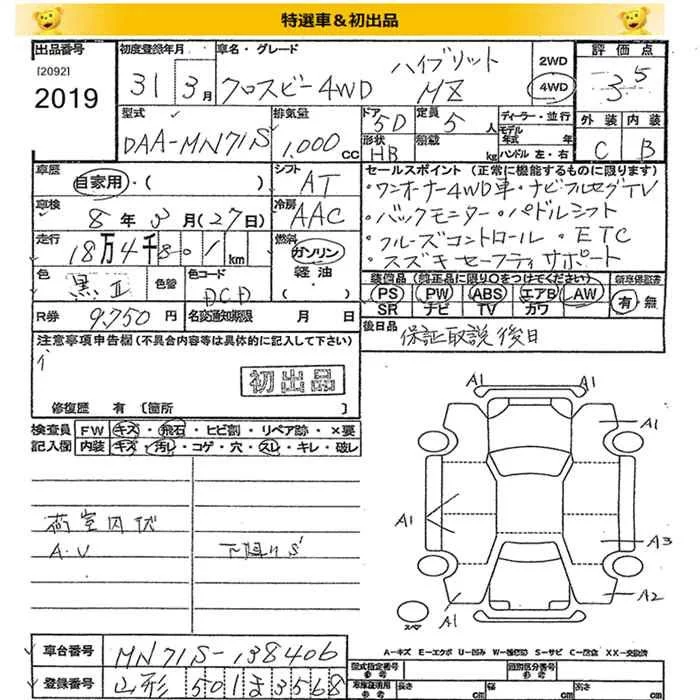 特選車＆初出品
出品番号 初度登録年月 車名・グレード 評価点
[2092] 2019
31 3月 クロスビー4WD ハイブリット MZ 2WD 4WD 3 5
型式 排気量 ドア 定員 ディーラー・並行 外装 内装
DAA-MN71S 1,000cc 5D 5人 モデル年式 年 C B
形状 積載 ハンドル 左・右
HB kg
車歴 シフト セールスポイント (正常に機能するものに限ります)
自家用・( ) AT ・ワンオーナー4WD車・ナビフルセグTV
車検 冷房 ・バックモニター・パドルシフト
8年3月(27日) AAC ・クルーズコントロール・ETC
走行 燃料 ・スズキセーフティサポート
18万4千80 1km ガソリン 軽油
色 色替 色コード 装備品 (純正品に限り○をつけてください) 新車保証書
黒Ⅱ DCD PS PW ABS エアB AW 有・無
SR ナビ TV カワ
R券 9,750円 名変通知期限 月 日 後日品
保証取説後日
注意事項申告欄(不具合内容等は具体的に記入して下さい)
初出品
修復歴 有 [箇所 ]
検査員 FW キズ・飛石・ヒビ割・リペア跡・×要
記入欄 内装 キズ・汚レ・コゲ・穴・スレ・キレ・破レ
荷室内状
A・V 下廻りS'
A1 A1
A1
A1
A3
A2
A1
スペア
A-キズ E-エクボ U-凹み W-補修跡 S-サビ C-腐食 XX-交換済
車台番号 MN71S-138406 型式指定番号 参考 類別区分番号 参考
登録番号 山形 501ま3568 車庫証明用 参考 長さ cm 幅 cm 高さ cm